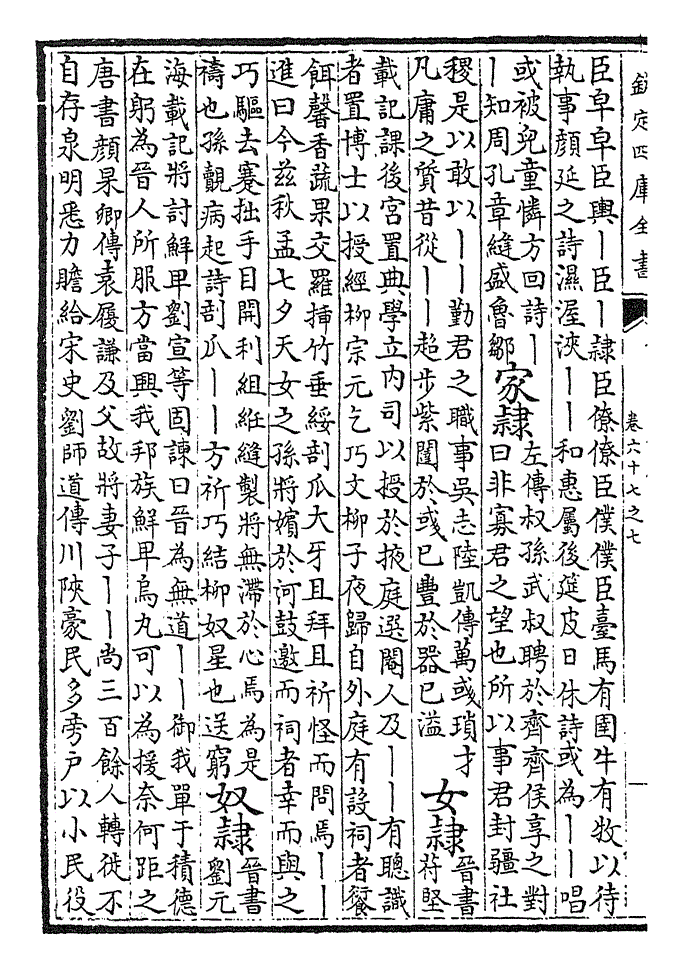 欽定四庫全書
卷六十七之七
一
臣皁皁臣輿丨臣丨隸臣僚僚臣僕僕臣臺馬有圉牛有牧以待
執事顏延之詩濕渥浹丨丨和惠屬後筵皮日休詩或為丨丨唱
或被兒童憐方回詩丨
丨知周孔章縫盛魯鄒
家隸
左傳叔孫武叔聘於齊齊侯享之對
曰非寡君之望也所以事君封疆社
稷是以敢以丨丨勤君之職事吳志陸凱傳萬彧瑣才
凡庸之質昔從丨丨超步紫闥於彧已豐於器已溢
女隸
晉書
苻堅
載記課後宮置典學立內司以授於掖庭選閹人及丨丨有聰識
者置博士以授經柳宗元乞巧文柳子夜歸自外庭有設祠者餰
餌馨香蔬果交羅揷竹垂綏剖瓜犬牙且拜且祈怪而問焉丨丨
進曰今茲秋孟七夕天女之孫將嬪於河鼓邀而祠者幸而與之
巧驅去蹇拙手目開利組絍縫製將無滯於心焉為是
禱也孫覿病起詩剖瓜丨丨方祈巧結柳奴星也送窮
奴隸
晉書
劉元
海載記將討鮮卑劉宣等固諫曰晉為無道丨丨御我單于積德
在躬為晉人所服方當興我邦族鮮卑烏丸可以為援奈何距之
唐書顏杲卿傳袁履謙及父故將妻子丨丨尚三百餘人轉徙不
自存泉明悉力贍給宋史劉師道傳川陜豪民多旁戶以小民役